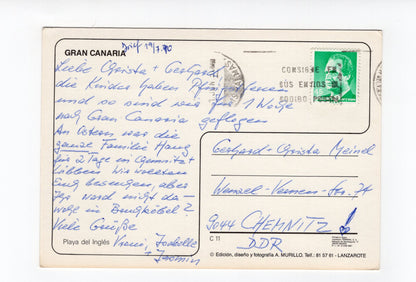 GRAN CANARIA
Brief 19/7.90
Liebe Christa + Gerhard,
die Kinder haben Pfingstferien
und so sind wir für 1 Woche
nach Gran Canaria geflogen
An Ostern war die
ganze Familie Haug
für 2 Tage in Chemnitz +
Lübben. Wir wollten
Euch besuchen, aber
Ihr ward nicht da –
wo in Burgkübel?
Viele Grüße
Playa del Inglés
Isabelle
+ Jasmin
CONSIGNE EN
SUS ENVIOS EL
CODIGO POSTAL
Gerhard + Christa Meinel
Str. 7A
9044 CHEMNITZ!
DDR
C 11
© Edición, diseño y fotografía A. MURILLO, Tell.: 81 57 61 - LANZAROTE